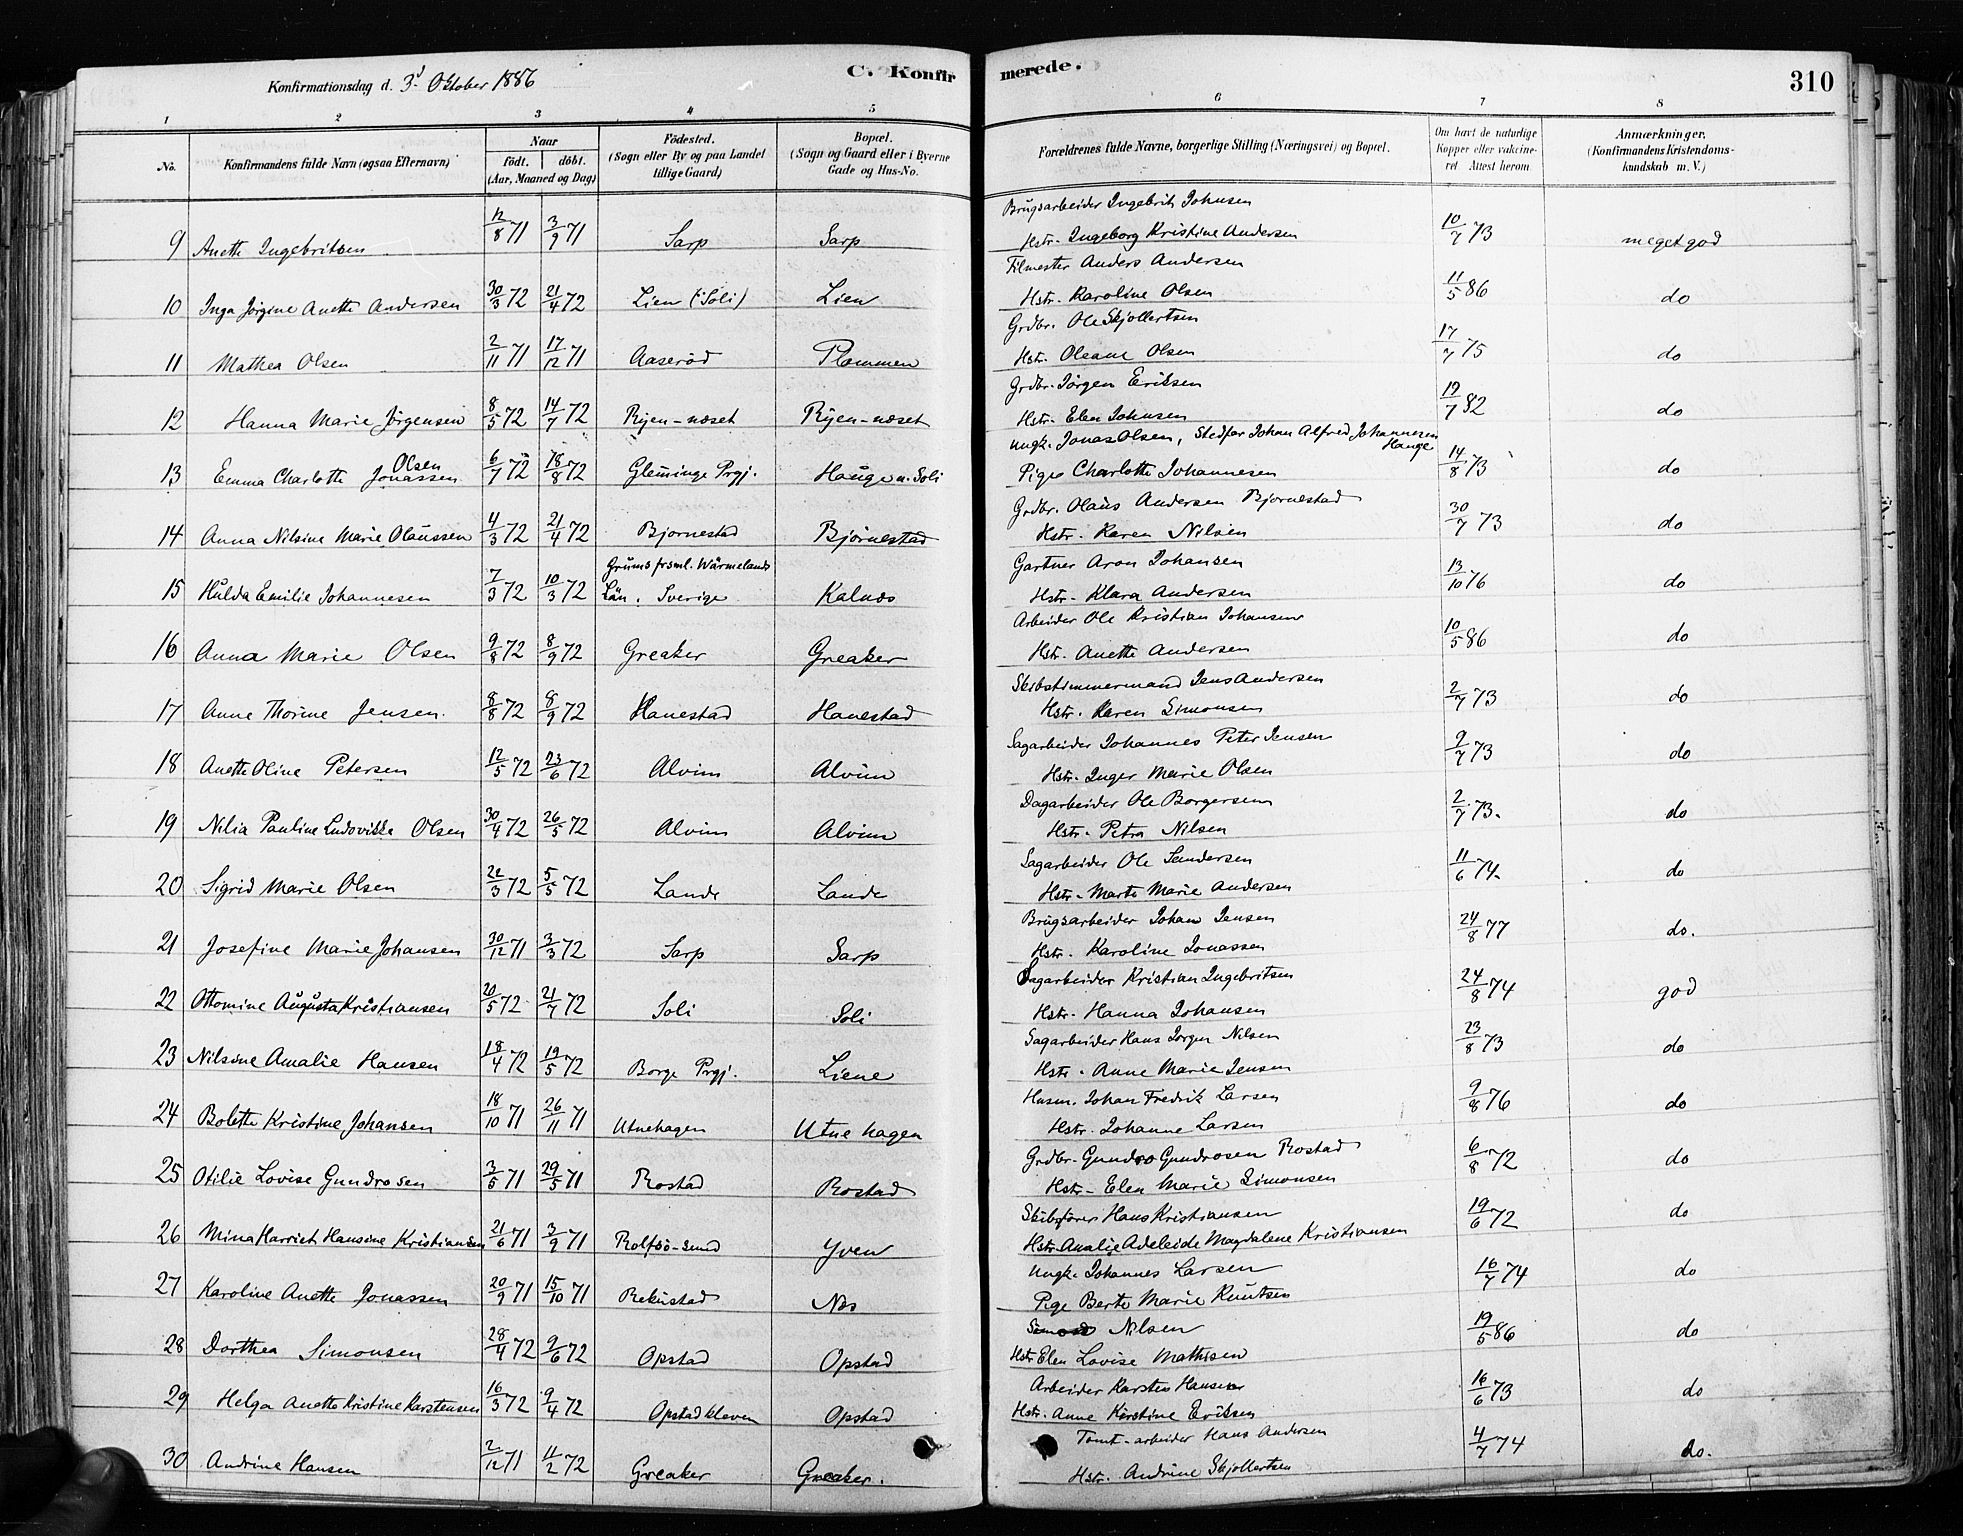 Konfirmationsdag d. 3d Oktober 1886
C. Konfir merede.
310
1 2 3 4 5 6 7 8
No. Konfirmandens fulde Navn (ogsaa Efternavn) Naar födt. döbt. (Aar, Maaned og Dag) Födested. (Sogn eller By og paa Landet tillige Gaard) Bopæl. (Sogn og Gaard eller i Byerne Gade og Hus-No. Forældrenes fulde Navne, borgerlige Stilling (Næringsvei) og Bopæl. Om havt de naturlige Kopper eller vakcineret Attest herom Anmærkninger. (Konfirmandens Kristendomskundskab m. V.)
Brugsarbeider Ingebrit Johnsen
9 Anette Ingebritsen 12/8 71 3/9 71 Sarp Sarp Hstr. Ingeborg Kristine Andersen 10/7 73 meget god
Filmester Anders Andersen
10 Inga Jörgine Anette Andersen 30/3 72 21/4 72 Lien (Soli) Lien Hstr. Karoline Olsen 11/5 86 do
Grdbr. Ole Skjollertsen
11 Mathea Olsen 2/11 71 17/12 71 Aaseröd Plommen Hstr. Oleane Olsen 17/7 75 do
Grdbr. Jörgen Eriksen
12 Hanna Marie Jörgensen 8/5 72 14/7 72 Ryen-næset Ryen-næset Hstr. Elen Johnsen 19/7 82 do
Ungk. Jonas Olsen, Stedfar Johan Alfred Johannesen Hauge
13 Emma Charlotte Jonassen Olsen 6/7 72 18/8 72 Glemminge Prgj. Hauge u. Soli Pige Charlotte Johannesen 14/8 73 do
Grdbr. Olaus Andersen Bjornestad
14 Anna Nilsine Marie Olaussen 4/3 72 21/4 72 Bjornestad Bjornestad Hstr. Karen Nilsen 30/7 73 do
Grums frsml. Wärmelands Gartner Aron Johansen
15 Hulda Emilie Johannesen 7/3 72 10/3 72 Län. Sverige Kalnæs Hstr. Klara Andersen 13/10 76 do
Arbeider Ole Kristian Johansen
16 Anna Marie Olsen 9/8 72 8/9 72 Greaker Greaker Hstr. Anette Andersen 10/5 86 do
Skibstimmermand Jens Andersen
17 Anne Thorine Jensen 8/8 72 8/9 72 Hanestad Hanestad Hstr. Karen Simonsen 2/7 73 do
Sagarbeider Johannes Peter Jensen
18 Anette Oline Petersen 12/5 72 23/6 72 Alvim Alvim Hstr. Inger Marie Olsen 9/7 73 do
Dagarbeider Ole Borgersen
19 Nilia Pauline Ludovikke Olsen 30/4 72 26/5 72 Alvim Alvim Hstr. Petra Nilsen 2/7 73. do
Sagarbeider Ole Sendersen
20 Sigrid Marie Olsen 22/3 72 5/5 72 Lande Lande Hstr. Marte Marie Andersen 11/6 74. do
Brugsarbeider Johan Jensen
21 Josefine Marie Johansen 30/12 71 3/3 72 Sarp Sarp Hstr. Karoline Jonassen 24/8 77 do.
Sagarbeider Kristian Ingebritsen
22 Ottomine Augusta Kristiansen 20/5 72 21/7 72 Soli Soli Hstr. Hanna Johansen 24/8 74 god
Sagarbeider Hans Jorgen Nilsen
23 Nilsine Amalie Hansen 18/4 72 19/5 72 Borge Prgj. Liene Hstr. Anne Marie Jensen 23/8 73 do
Husm. Johan Fredrik Larsen
24 Bolette Kristine Johansen 18/10 71 26/11 71 Utnehagen Utnehagen Hstr. Johanne Larsen 9/8 76 do
Grdbr. Gundro Gundrosen Rostad
25 Otilie Lovise Gundrosen 3/5 71 29/5 71 Rostad Rostad Hstr. Elen Marie Simonsen 6/8 72 do
Skibsförer Hans Kristiansen
26 Mina Harriet Hansine Kristiansen 21/6 71 3/9 71 Rolfsö-sund Yven Hstr. Amalie Adeleide Magdalene Kristiansen 19/6 72 do
Ungk. Johannes Larsen
27 Karoline Anette Jonassen 20/9 71 15/10 71 Rekustad Næs Pige Berte Marie Knutsen 16/7 74 do
Nilsen
28 Dorthea Simonsen 28/4 72 9/6 72 Opstad Opstad Hstr. Elen Lovise Mathisen 19/5 86 do
Arbeider Karsten Hansen
29 Helga Anette Kristine Karstensen 16/3 72 9/4 72 Opstad kleven Opstad Hstr. Anne Kirstine Eriksen 16/6 73 do
Tomt-arbeider Hans Andersen
30 Andrine Hansen 2/12 71 11/2 72 Greaker Greaker. Hstr. Andrine Skjollertsen 4/7 74 do.